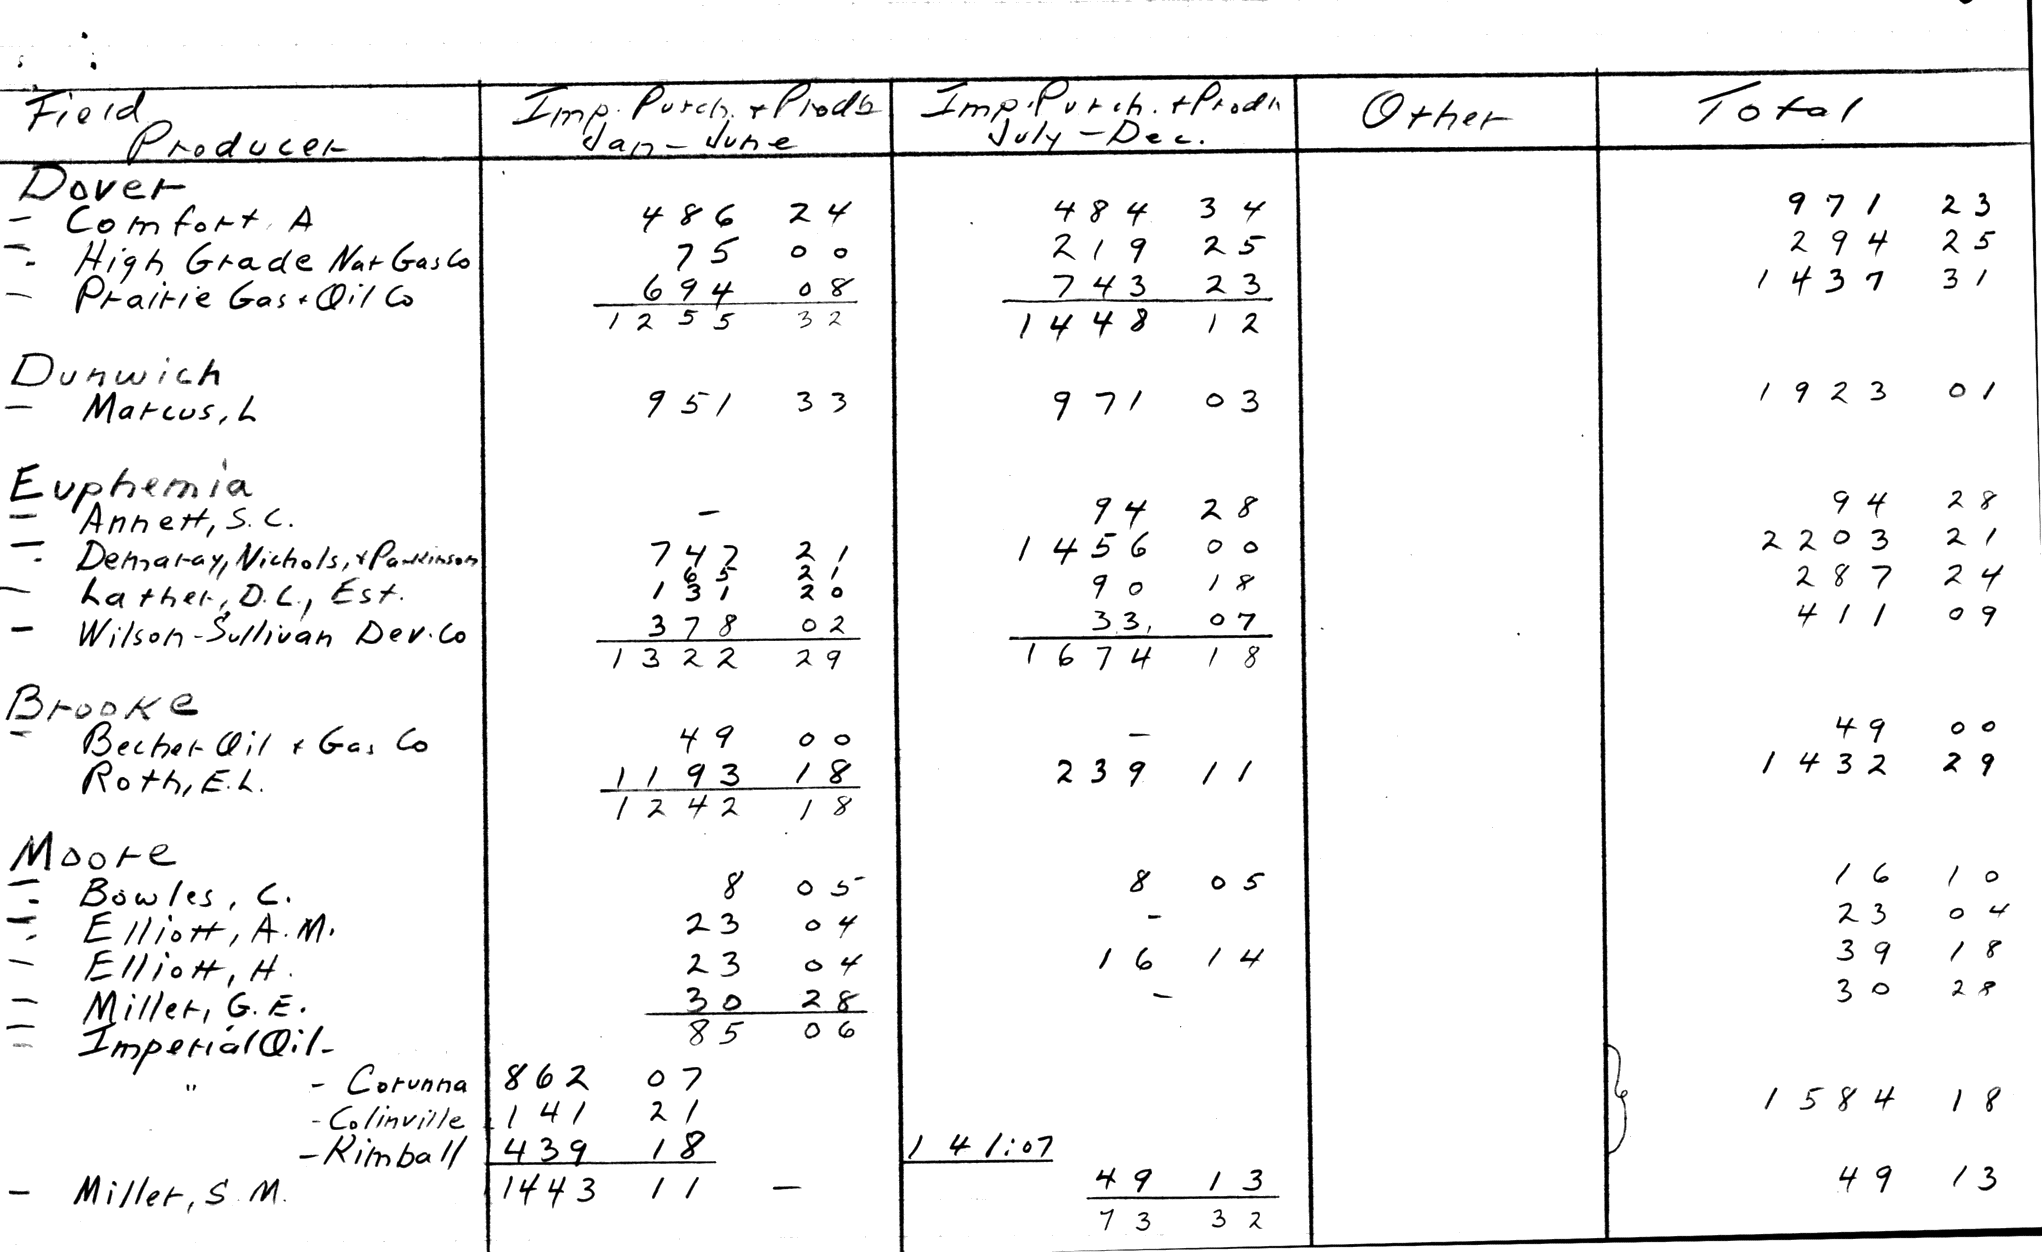 Field Producer Imp. Purch. + Prodn Jan-June Imp. Purch. + Prodn July-Dec. Other Total
Dover
- Comfort, A 486 24 484 34 971 23
- High Grade Nat Gas Co 75 00 219 25 294 25
- Prairie Gas + Oil Co 694 08 743 23 1437 31
1255 32 1448 12
Dunwich
- Marcus, L 951 33 971 03 1923 01
Euphemia
- Annett, S.C. - 94 28 94 28
- Demaray, Nichols, + Parkinson 747 21 1456 00 2203 21
65 21
- Lather, D.C., Est. 131 20 90 18 287 24
- Wilson-Sullivan Dev. Co 378 02 33 07 411 09
1322 29 1674 18
Brooke
- Becher Oil + Gas Co 49 00 - 49 00
Roth, E.L. 1193 18 239 11 1432 29
1242 18
Moore
- Bowles, C. 8 05 8 05 16 10
- Elliott, A.M. 23 04 - 23 04
- Elliott, H. 23 04 16 14 39 18
- Miller, G.E. 30 28 - 30 28
- Imperial Oil- 85 06
" - Corunna 862 07
- Colinville 141 21 1584 18
- Kimball 439 18 141:07
- Miller, S.M. 1443 11 - 49 13 49 13
73 32